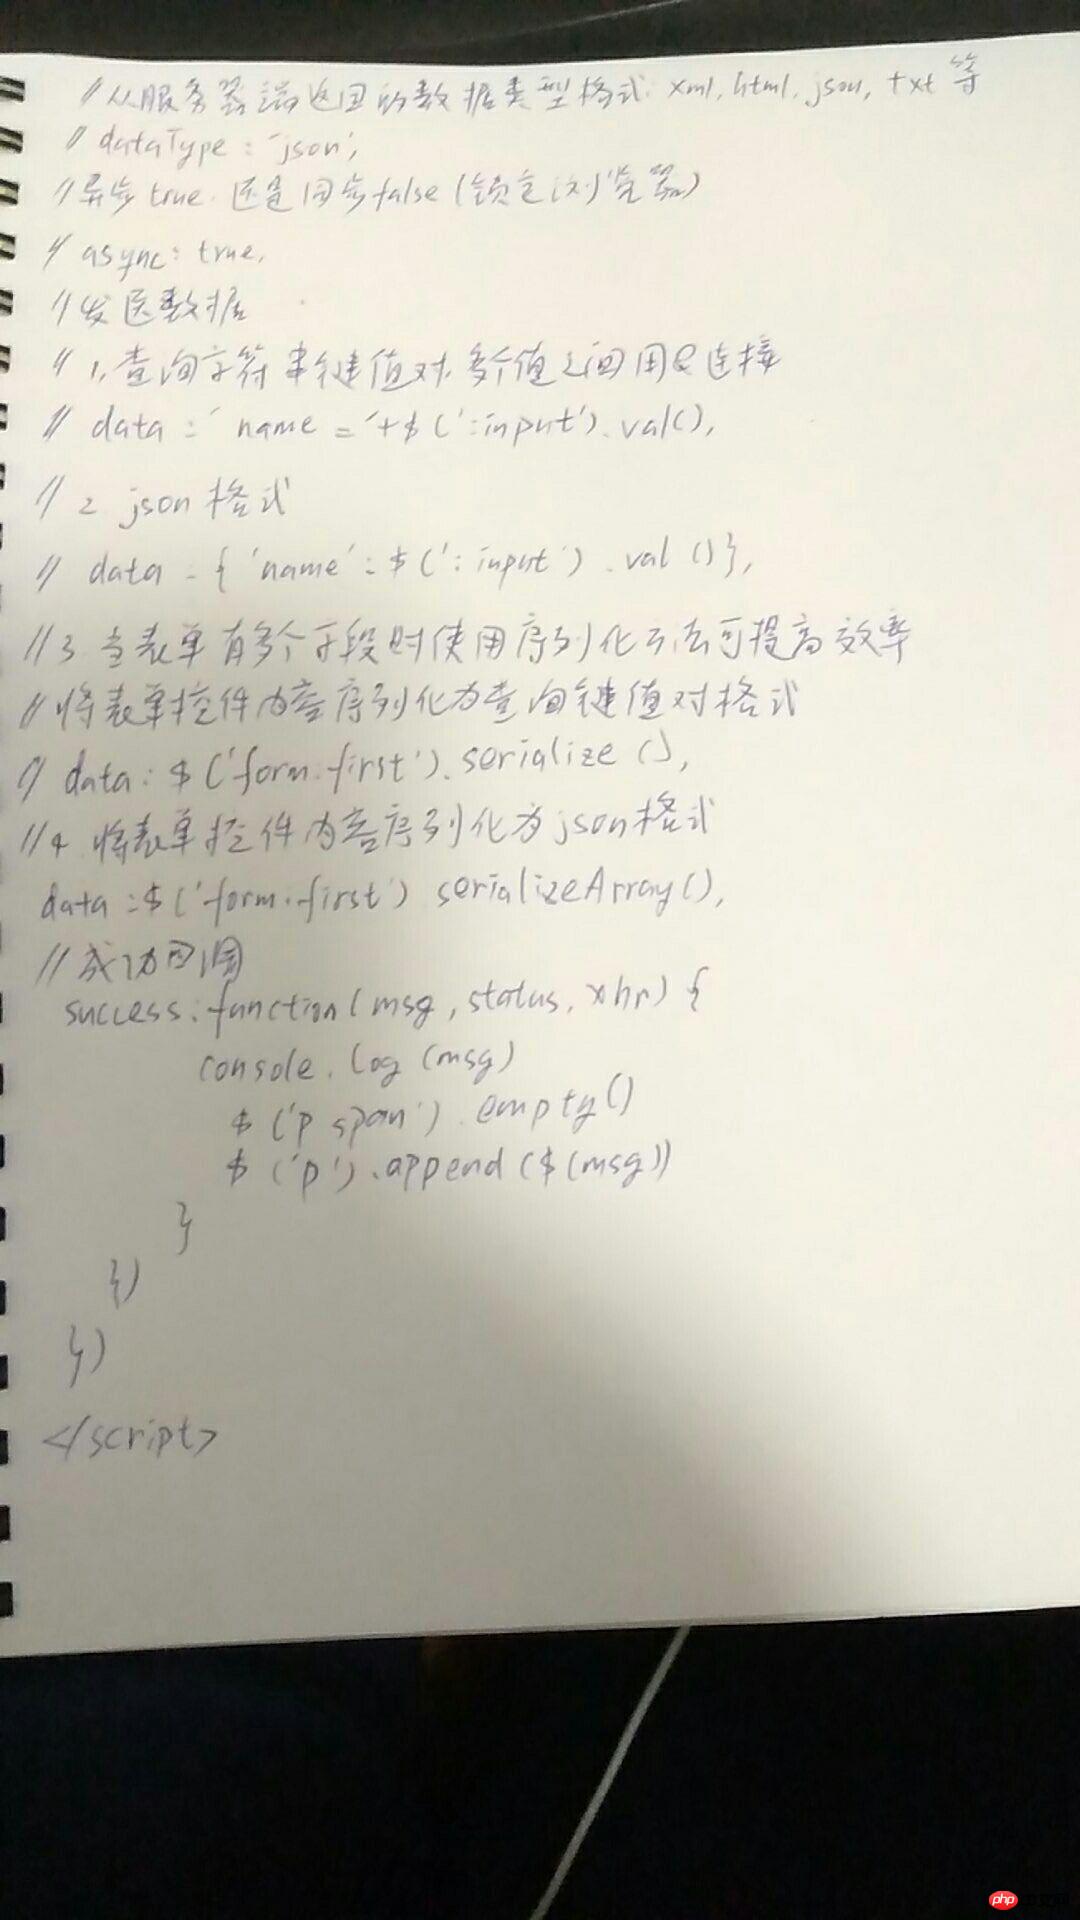 //从服务器端返回的数据类型格式: xml, html, json, txt 等
// dataType: 'json',
//异步true. 还是同步false(锁定浏览器)
// async: true,
//发送数据
// 1,查询字符串键值对,多个值之间用&连接
// data: 'name='+$(':input').val(),
// 2 json格式
// data: {'name':$(':input').val()},
//3 当表单有多个字段时使用序列化方法可提高效率
//将表单控件内容序列化为查询键值对格式
// data: $('form.first').serialize(),
//4 将表单控件内容序列化为json格式
data:$('form.first') serializeArray(),
//成功回调
success:function(msg,status,xhr) {
console.log(msg)
$('p span').empty()
$('p').append($(msg))
}
})
})
</script>
php